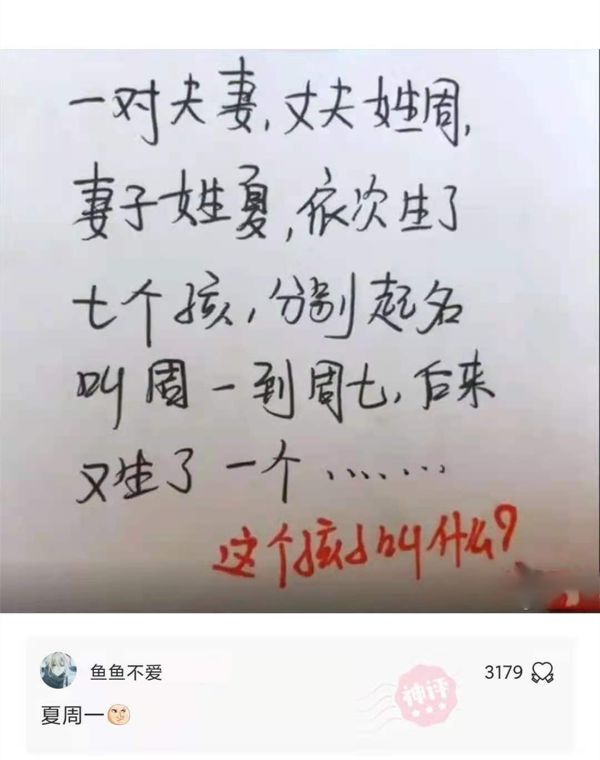 一对夫妻,丈夫姓周,
妻子姓夏,依次生了
七个孩,分别起名
叫周一到周七,后来
又生了一个.......
这个孩子叫什么?
鱼鱼不爱
3179
神评
夏周一